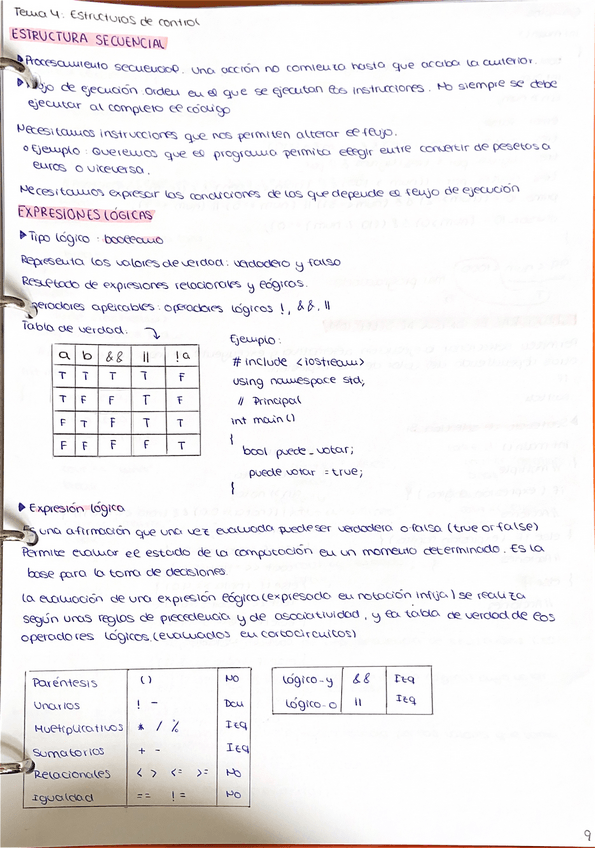 Tema 4: Estructuras de control
ESTRUCTURA SECUENCIAL
Procesamiento secuencial. Una acción no comienza hasta que acaba la anterior.
Flujo de ejecución. Orden en el que se ejecutan las instrucciones. No siempre se debe
ejecutar al completo el código
Necesitamos instrucciones que nos permiten alterar el flujo.
Ejemplo: Queremos que el programa permita elegir entre convertir de pesetas a
euros o viceversa.
Necesitamos expresar las condiciones de las que depende el flujo de ejecución
EXPRESIONES LÓGICAS
Tipo lógico: booleano
Representa los valores de verdad: verdadero y falso
Resultado de expresiones relacionales y lógicas.
Operadores aplicables: operadores lógicos !, &&, ||
Tabla de verdad:
a b && || !a
T T T T F
T F F T F
F T F T T
F F F F T
Ejemplo:
# include <iostream>
using namespace std;
// Principal
int main ()
{
bool puede_votar;
puede votar = true;
}
Expresión lógica
Es una afirmación que una vez evaluada puede ser verdadera o falsa (true or false)
Permite evaluar el estado de la computación en un momento determinado. Es la
base para la toma de decisiones.
La evaluación de una expresión lógica (expresado en notación infija) se realiza
según unas reglas de precedencia y de asociatividad, y la tabla de verdad de los
operadores lógicos. (evaluados en cortocircuitos)
Paréntesis () NO
Unarios ! - Dcu
Multiplicativos * / % Izq
Sumatorios + - Izq
Relacionales < > <= >= NO
Igualdad == != NO
lógico-y && Izq
lógico-o || Izq
9